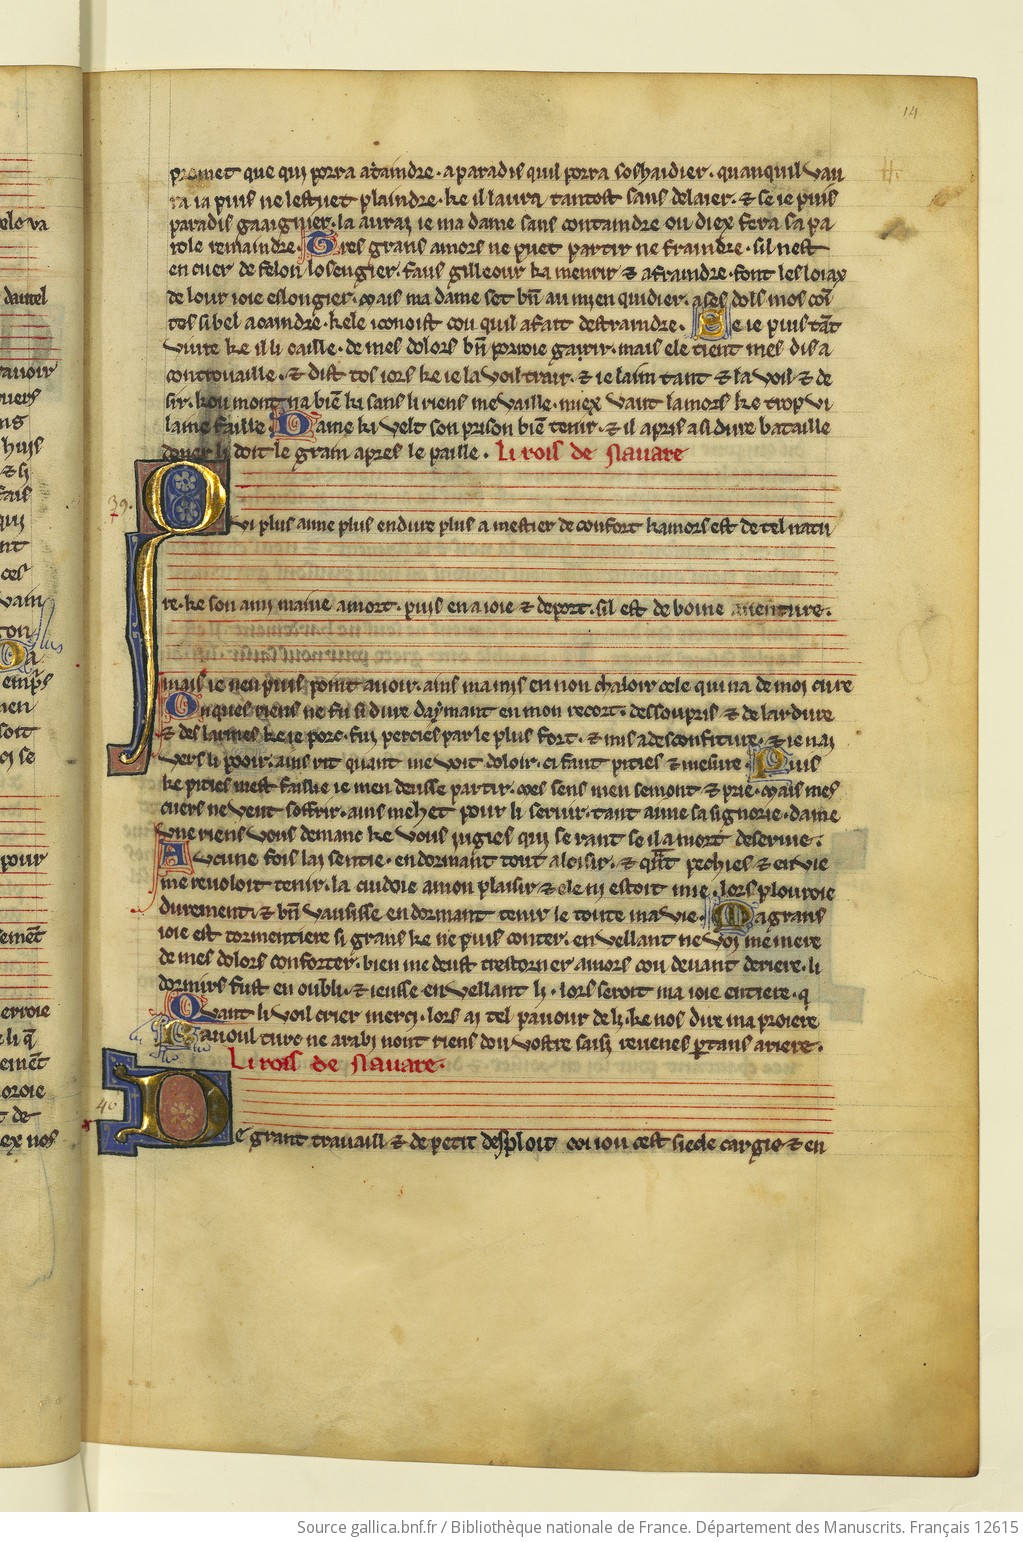 14
promet que qui porra ataindre · a paradis quil porra soshaidier · quanquil vau
ra ia puis ne lestuet plaindre · ke il laura tantost sans delaier · & se ie puis
paradis gaaignier · la aurai ie ma dame sans containdre ou diex fera sa pa
role remaindre · Tres grans amors ne puet partir ne fraindre · sil nest
en cuer de felon losengier · faus gilleour ka mentir & a fraindre · font les loiax
de lour ioie eslongier · mais ma dame set bn̄ au mien quidier · a ses dols mos coī
tes si bel acaindre · kele iconoist cou quil a fait destraindre · Se ie puis tāt
viure ke il li caille · de mes dolors bn̄ porroie garir · mais ele tient mes dis a
controuaille · & dist tos iors ke ie la voil trair · & ie laim tant & la voil & de
sir · kou mont na biē ki sans li riens me vaille · miex vaut la mors ke trop vi
lame faille · Dame ki velt son prison biē tenir · & il a pris a si dure bataille
doner li doit le grain apres le paille · Li rois de Nauare
39.
Qvi plus aime plus endure plus a mestier de confort kamors est de tel natu
re · ke son ami maine a mort · puis en a ioie & deport · sil est de boine auenture ·
mais ie nen puis point auoir · ains ma mis en non chaloir cele qui na de moi cure
Onques riens ne fu si dure daymant en mon recort · dessoupris & de lardure
& des larmes ke ie port · fui percies par le plus fort · & mis a desconfiture · & ie nai
vers li pooir · ains rit quant me voit doloir · ci faut pities & mesure · Puis
ke pities mest faillie ie men deusse partir · mes sens men semont & prie · mais mes
cuers ne veut soffrir · ains mehet pour li seruir · tant aime sa signorie · dame
vne riens vous demanc ke vous iugies qui se rant se il a mort deseruie ·
Avcune fois lai sentie · en dormant tout a loisir · & qn̄t pechies & envie
me reuoloit tenir · la cuidoie a mon plaisir & ele ni estoit mie · lors plouroie
durement · & bn̄ vausisse en dormant tenir le toute ma vie · Magrans
ioie est tormentiere si grans ke ne puis conter · en vellant ne voi me mere
de mes dolors conforter · bien me deust trestorner amors cou deuant deriere · li
dormirs fust en oubli · & ieusse en vellant li · lors seroit ma ioie entiere · q
Qvant li voil crier merci · lors ai tel paour de li · ke nos dire ma proiere
Rauoul turc ne arabi nont riens dou vostre saisi reuenes p̄tans ariere ·
Li rois de Nauare ·
40
De grant trauaill & de petit desploit coi iou cest siecle cargie & en
Source gallica.bnf.fr / Bibliothèque nationale de France. Département des Manuscrits. Français 12615